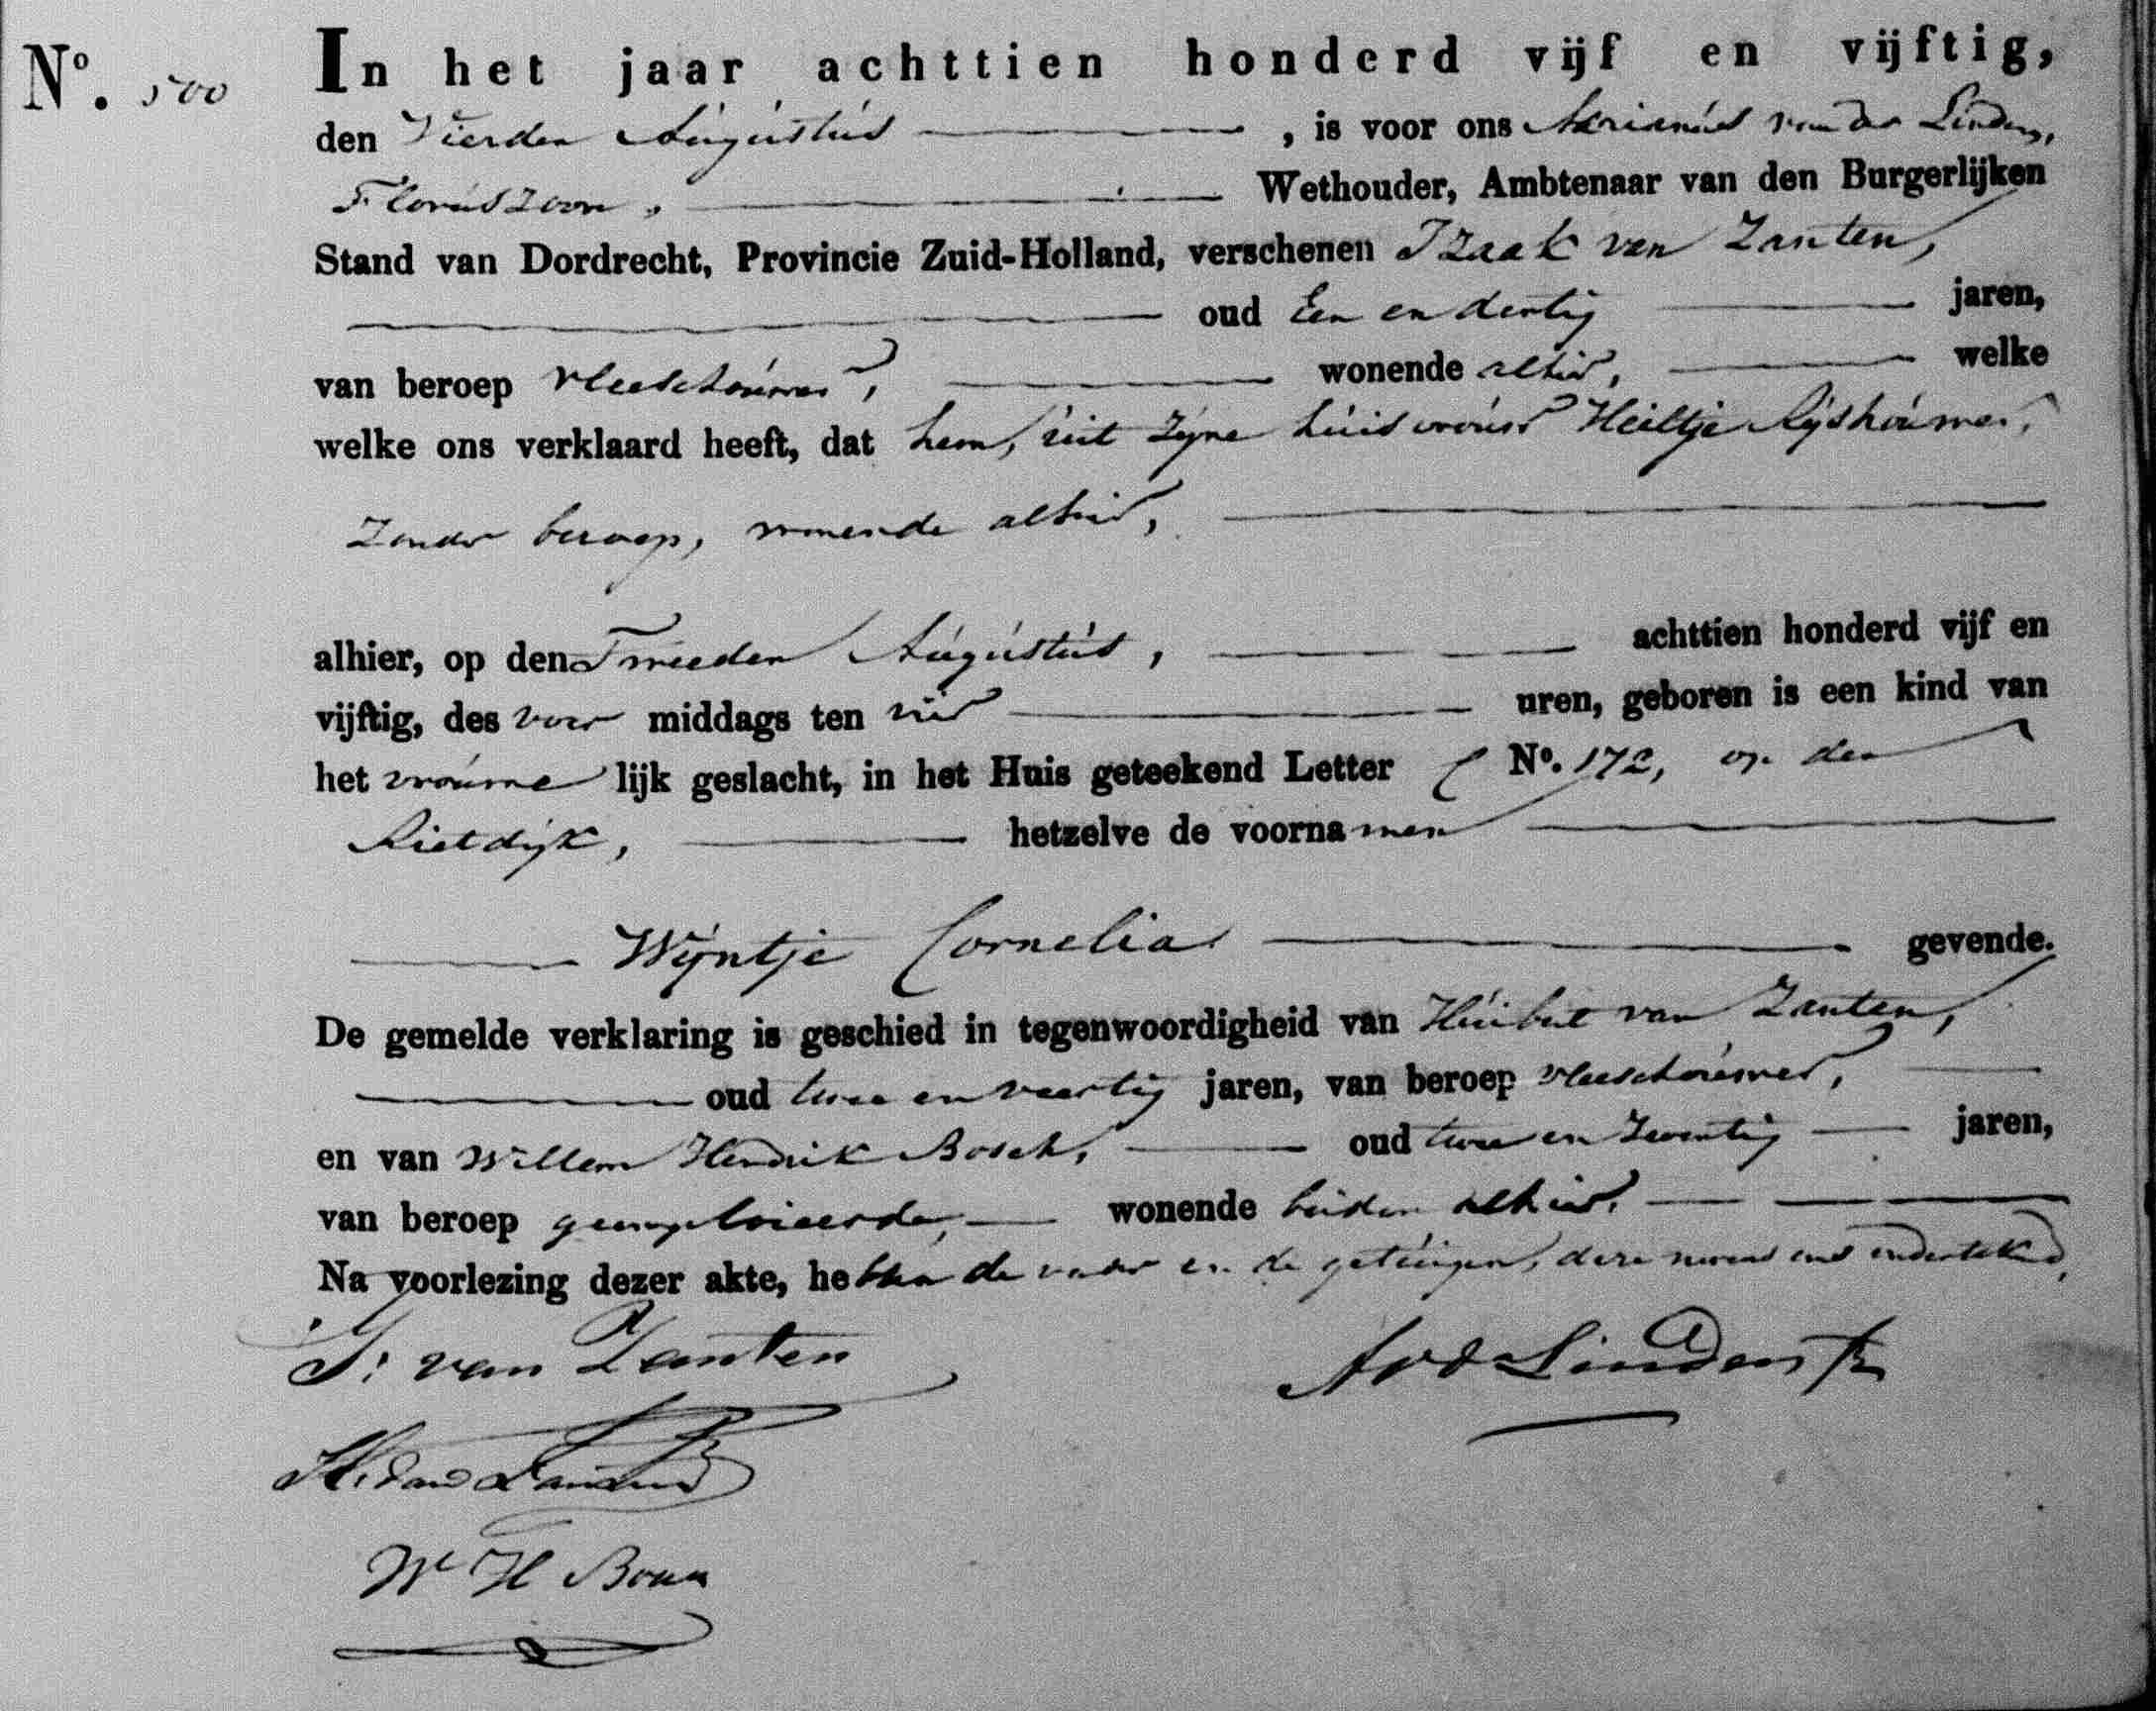 No. 500
In het jaar achttien honderd vijf en vijftig,
den Vierden Augustus, is voor ons Adrianus van der Linden,
Floriszoon, Wethouder, Ambtenaar van den Burgerlijken
Stand van Dordrecht, Provincie Zuid-Holland, verschenen Izaak van Zanten,
oud Een en dertig jaren,
van beroep vleeschouwer, wonende alhier, welke
welke ons verklaard heeft, dat hem, uit zijne huisvrouw Heiltje Rijshouwer,
zonder beroep, wonende alhier,
alhier, op den Tweeden Augustus, achttien honderd vijf en
vijftig, des voor middags ten vier uren, geboren is een kind van
het vrouwe lijk geslacht, in het Huis geteekend Letter C No. 172, op den
Rietdijk, hetzelve de voorna men
Wijntje Cornelia gevende.
De gemelde verklaring is geschied in tegenwoordigheid van Huibert van Zanten,
oud twee en veertig jaren, van beroep vleeschouwer,
en van Willem Hendrik Bosch, oud twee en zeventig jaren,
van beroep geemploieerde, wonende beiden alhier.
Na voorlezing dezer akte, hebben de vader en de getuigen, deze nevens ons onderteekend,
I: van Zanten
AvdLinden Fz
H. van Zanten
W H Bosch